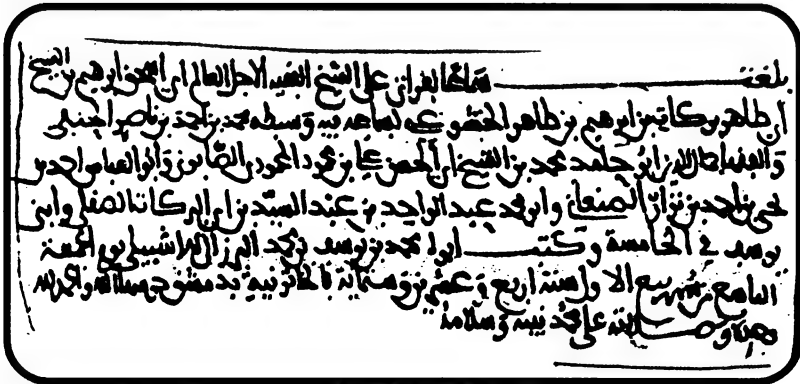 بلغت سماعا بقراتي على الشيخ الفقيه الاجل العالم ابي اسحق ابرهيم بن الشيخ
ابي طاهر بركات بن ابرهيم بن طاهر الخشوعي بسماعه فيه وسمعه محمد بن احمد بن ناصر الحنبلي
والفقيه ابو حامد محمد بن الشيخ ابي الحسن علي بن محمود المحمودي الصابوني وابو العباس احمد بن
يحيى بن احمد بن نزار الصنعاني وابو محمد عبد الواحد بن عبد السيد بن ابي البركات الصقلي وابن
يوسف في الخامسة وكتب ابو محمد بن يوسف بن محمد البرزالي الاشبيلي يوم الجمعة
التاسع من شهر ربيع الاول سنة اربع وعشرين وستماية بدمشق والحمد لله
وحده وصلاته على محمد نبيه وسلامه